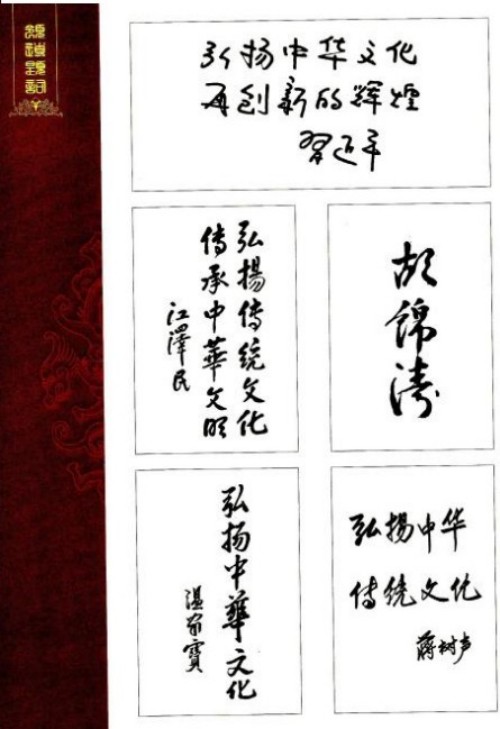 领导题词
弘扬中华文化
再创新的辉煌
習近平
弘揚傳統文化
传承中華文明
江澤民
胡錦濤
弘扬中華文化
温家寶
弘揚中华
传统文化
蒋树声